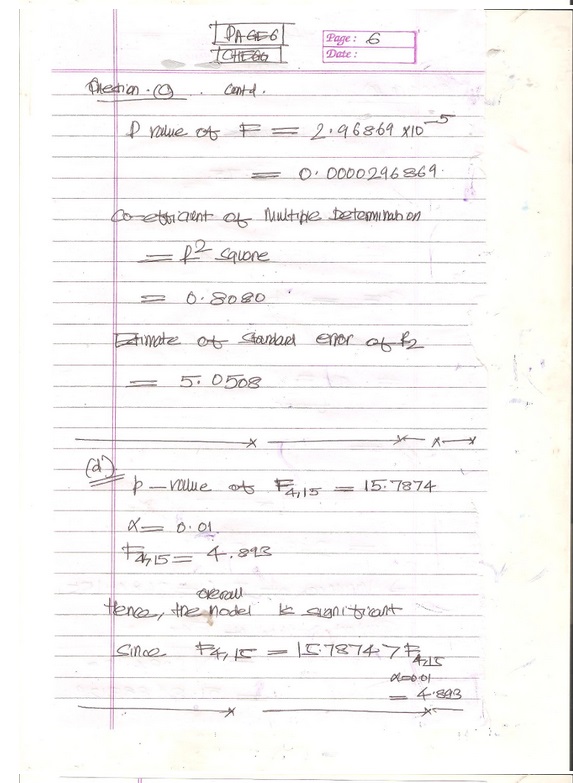 PAGE 6
CHEGG
Page: 6
Date:
Question. (C). Contd.
P value of F = 2.96869 X10^-5
= 0.0000296869.
Co-efficient of Multiple Determination
= R^2 square
= 0.8080
Estimate of standard error of β2
= 5.0508
(d)
p-value of F4,15 = 15.7874
α = 0.01
F4,15 = 4.893
Hence, the overall model is significant
Since F4,15 = 15.7874 > F4,15
α=0.01
= 4.893